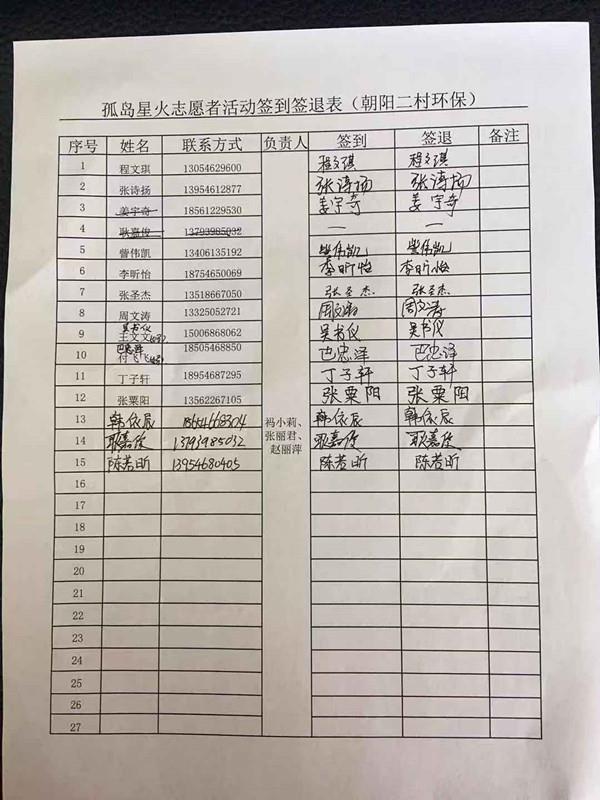 孤岛星火志愿者活动签到签退表（朝阳二村环保）
序号 姓名 联系方式 负责人 签到 签退 备注
1 程文琪 13054629600 程文琪 程文琪
2 张诗扬 13954612877 张诗扬 张诗扬
3 姜宇奇 18561229530 姜宇奇 姜宇奇
4 耿嘉俊 13793985032 — —
5 訾伟凯 13406135192 訾伟凯 訾伟凯
6 李昕怡 18754650069 李昕怡 李昕怡
7 张圣杰 13518667050 张圣杰 张圣杰
8 周文涛 13325052721 周文涛 周文涛
9 吴书仪 王文文 15006868062 吴书仪 吴书仪
10 巴忠泽 付飞飞 18505468850 巴忠泽 巴忠泽
11 丁子轩 18954687295 丁子轩 丁子轩
12 张粟阳 13562267105 张粟阳 张粟阳
13 韩依辰 18654668304 韩依辰 韩依辰
14 耿嘉俊 13793985032 耿嘉俊 耿嘉俊
15 陈若昕 13954680405 陈若昕 陈若昕
祃小莉、
张丽君、
赵丽萍
16
17
18
19
20
21
22
23
24
25
26
27